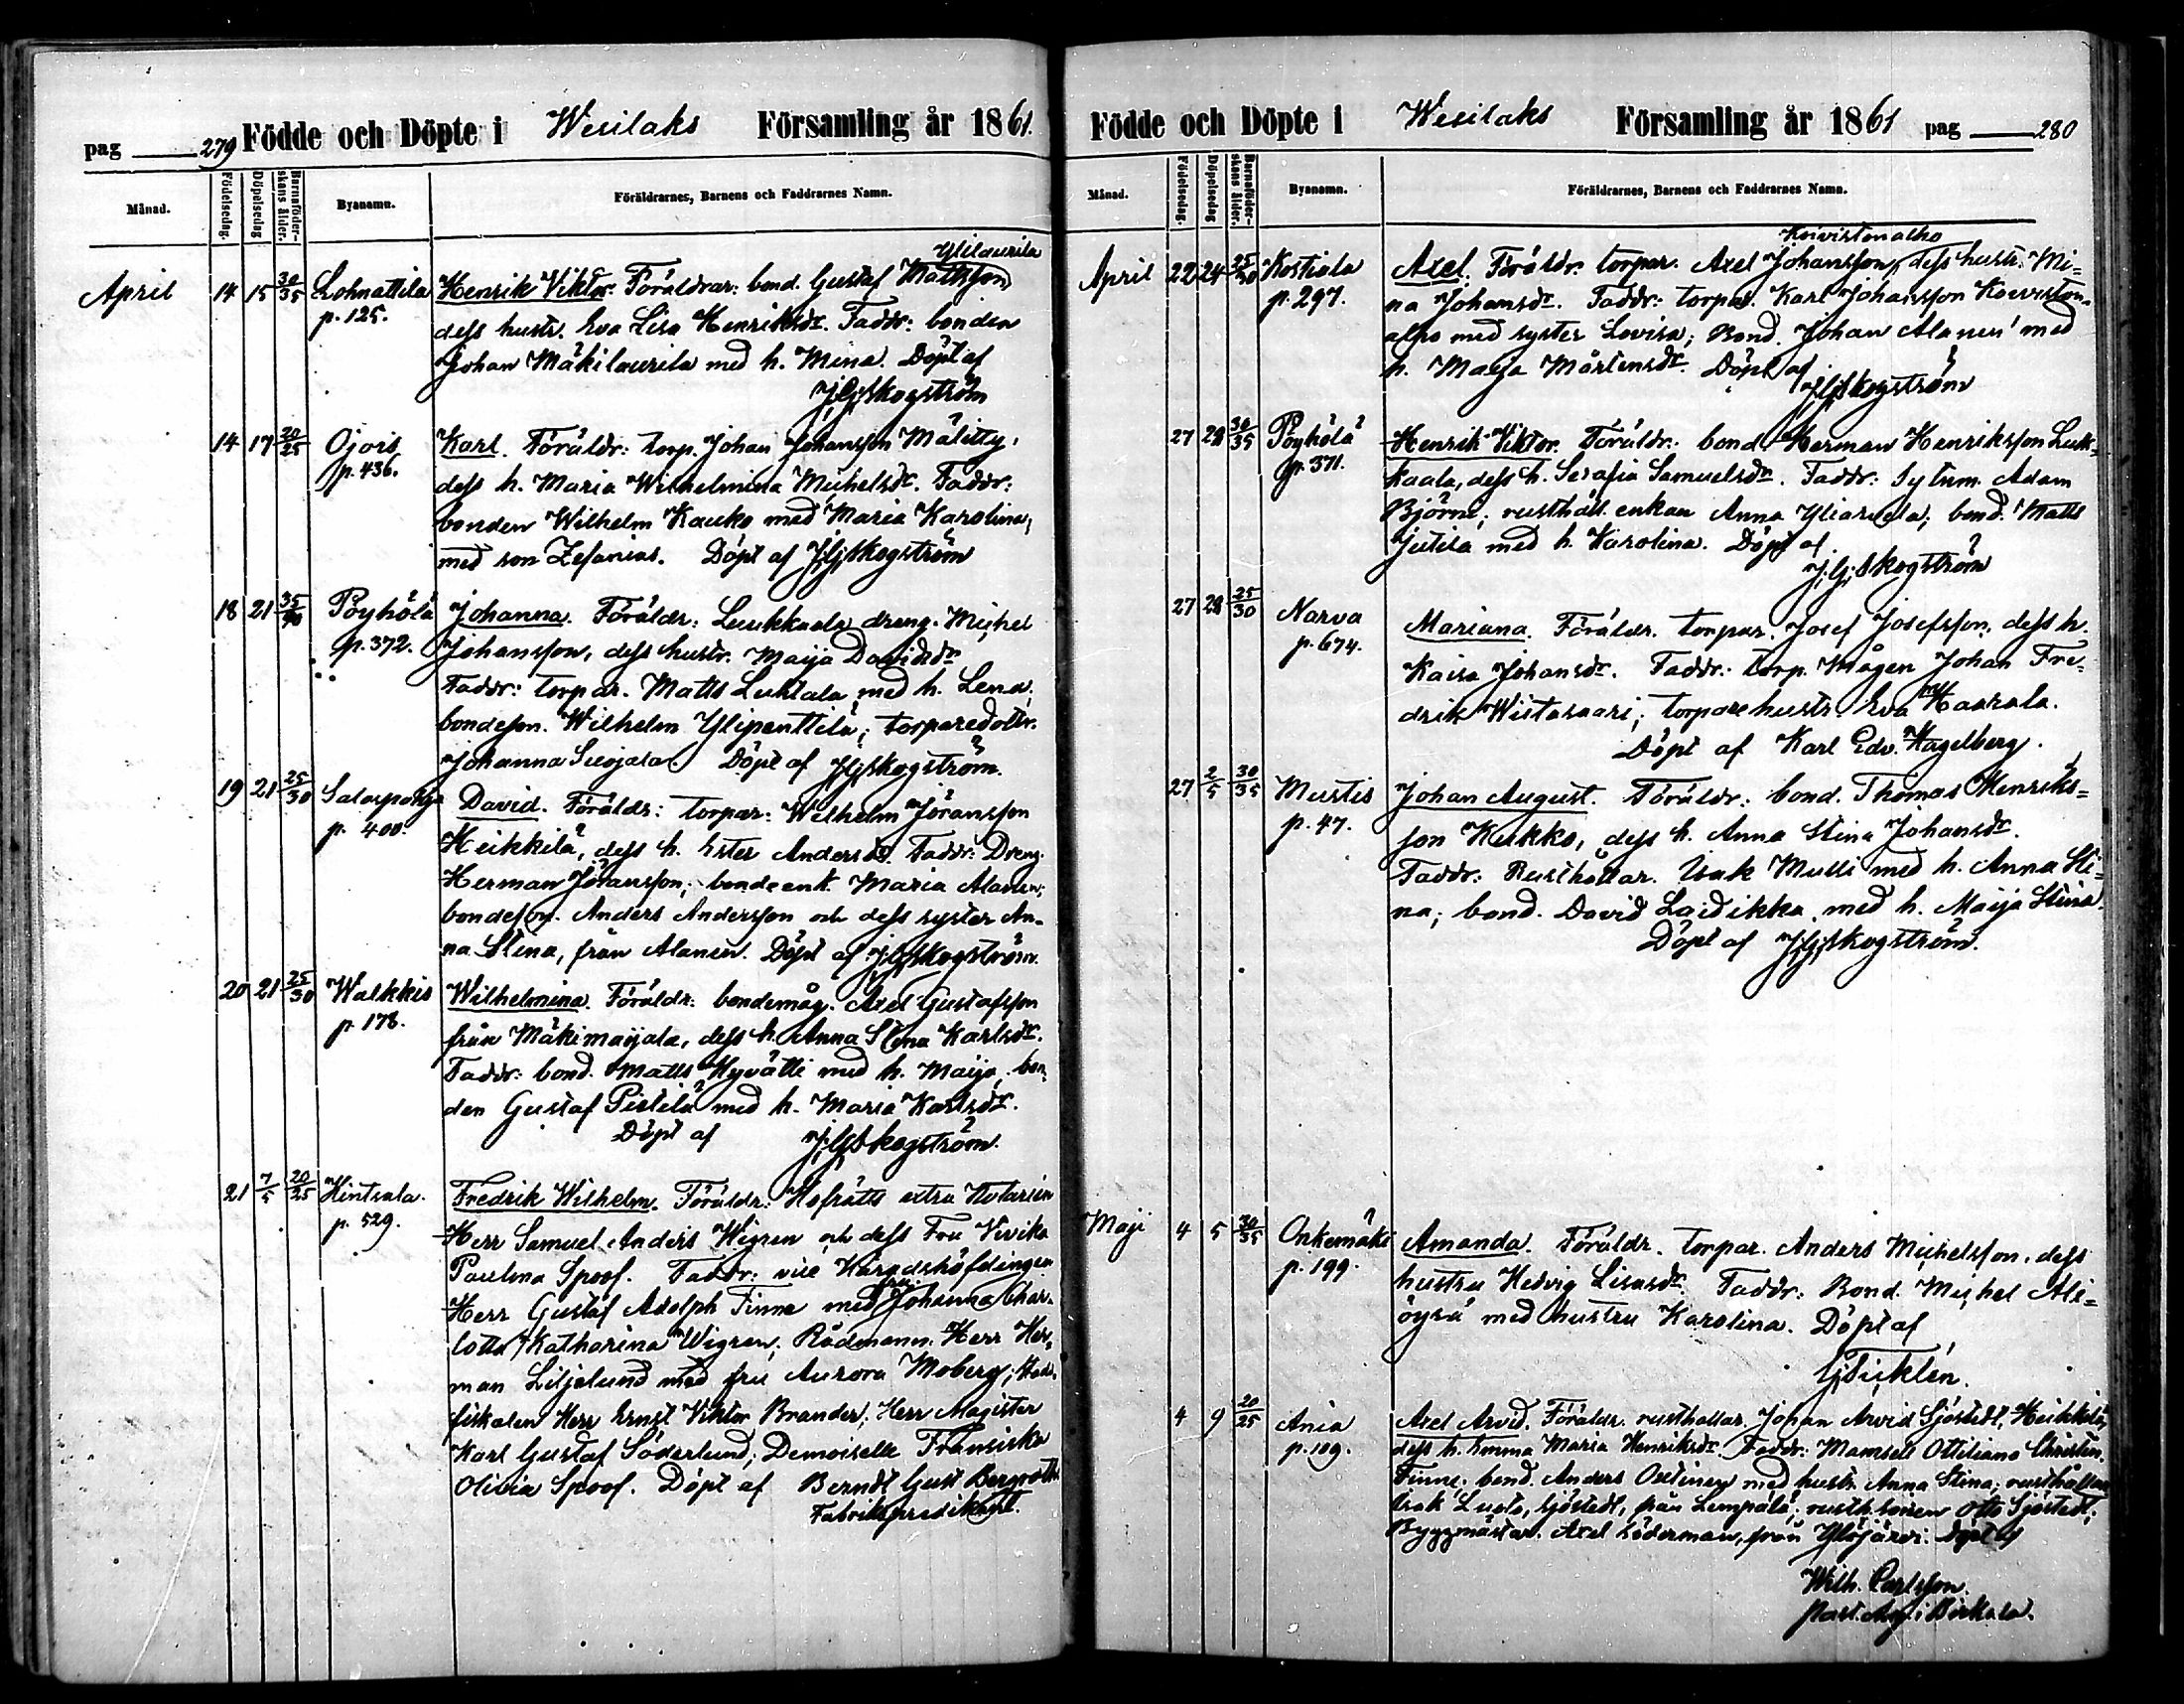 pag 279 Födde och Döpte i Wesilaks Församling år 1861.
Månad. Födelsedag. Döpelsedag Barnaföderskans ålder. Byanamn. Föräldrarnes, Barnens och Faddrarnes Namn.
Ylilaurila
April 14 15 30/35 Lohnattila Henrik Viktor. Föräldrar: bond. Gustaf Mattsson
p. 125. dess hustr. Eva Lisa Henriksdr. Faddr: bonden
Johan Mäkilaurila med h. Mina. Döpt af
J.G.Skogström
14 17 20/25 Ojois Karl. Föräldr: torp. Johan Johansson Mälitty,
p. 436. dess h. Maria Wilhelmina Michelsdr. Faddr:
bonden Wilhelm Kauko med Maria Karolina,
med son Zefanias. Döpt af J.G.Skogström
18 21 35/40 Pöyhölä Johanna. Föräldr: Luukkaala dreng. Michel
p. 372. Johansson, dess hustr. Maija Davidsdr.
Faddr: torpar. Matts Luhtala med h. Lena,
bondeson. Wilhelm Ylipenttilä; torparedottr.
Johanna Suojala. Döpt af J.G.Skogström.
19 21 25/30 Salospohja David. Föräldr: torpar: Wilhelm Jöransson
p. 400. Heikkilä, dess h. Ester Andersdr. Faddr: Dreng.
Herman Jöransson; bondeenk. Maria Alanen;
bondeson. Anders Andersson och dess syster An-
na Stina, från Alanen. Döpt af J.G.Skogström.
20 21 25/30 Walkkis Wilhelmina. Föräldr: bondemåg. Axel Gustafsson
p. 178. från Mäkimaijala, dess h. Anna Stina Karlsdr.
Faddr: bond. Matts Hyvätti med h. Maija, bon-
den Gustaf Pietilä med h. Maria Karlsdr.
Döpt af J.G.Skogström.
21 7/5 20/25 Hintsala. Fredrik Wilhelm. Föräldr: Hofrätts extra Notarien
p. 529. Herr Samuel Anders Wigren och dess Fru Vivika
Paulina Spoof. Faddr: vice Häradshöfdingen
Herr Gustaf Adolph Finne med fru Johanna Char-
lotta Katharina Wigren; Rådmann. Herr Her-
man Liljelund med fru Aurora Moberg; Stads-
fiskalen Herr Ernst Viktor Brander; Herr Magister
Karl Gustaf Söderlund; Demoiselle Fransiska
Olivia Spoof. Döpt af Berndt Gust Bergroth
Fabrikspredikant.
Födde och Döpte i Wesilaks Församling år 1861 pag 280
Månad. Födelsedag. Döpelsedag Barnaföderskans ålder. Byanamn. Föräldrarnes, Barnens och Faddrarnes Namn.
Koivistonalho
April 22 24 25/30 Kostiala Axel. Föräldr. torpar. Axel Johansson, dess hustr. Mi-
p. 297. na Johansdr. Faddr: torpar. Karl Johansson Koiviston-
alho med syster Lovisa; Bond. Johan Alanen med
h. Maija Mårtensdr. Döpt af
J.G.Skogström
27 28 30/35 Pöyhölä Henrik Viktor. Föräldr: bond. Herman Henriksson Luuk-
p. 371. kaala, dess h. Serafia Samuelsdr. Faddr: Sytnm. Adam
Björni; rusthåll. enkan Anna Yliarvela; bond. Matts
Jutila med h. Karolina. Döpt af
J.G.Skogström
27 28 25/30 Narva Mariana. Föräldr. torpar. Josef Josefsson, dess h.
p. 674. Kaisa Johansdr. Faddr: torp. Mågen Johan Fre-
drik Wiitasaari; torparehustr. Eva Haarala.
Döpt af Karl Edv. Hagelberg.
27 2/5 30/35 Mustis Johan August. Föräldr: bond. Thomas Henriks-
p. 47. son Kukko, dess h. Anna Stina Johansdr.
Faddr: Rusthållar. Isak Mutti med h. Anna Sti-
na; bond. David Laidikka med h. Maija Stina.
Döpt af J.G.Skogström.
Maji 4 5 30/35 Onkemäki Amanda. Föräldr. torpar. Anders Michelsson, dess
p. 199. hustru Hedvig Lisasdr. Faddr: Bond. Michel Ali-
öyrä med hustru Karolina. Döpt af
G.Ticklén.
4 9 20/25 Ania Axel Arvid. Föräldr. rusthållar. Johan Arvid Sjöstedt, Heikkilä,
p. 109. dess h. Emma Maria Henriksdr. Faddr: Mamsell Ottiliana Christin.
Finne; bond. Anders Ostinen med hustr. Anna Stina; rusthållar.
Isak Lusto, Sjöstedt, från Lempälä; rusth. sonen Otto Sjöstedt;
Byggmästar. Axel Söderman, från Ylöjärvi. Döpt af
Wilh. Carlsson.
Past. Adj. i Birkala.